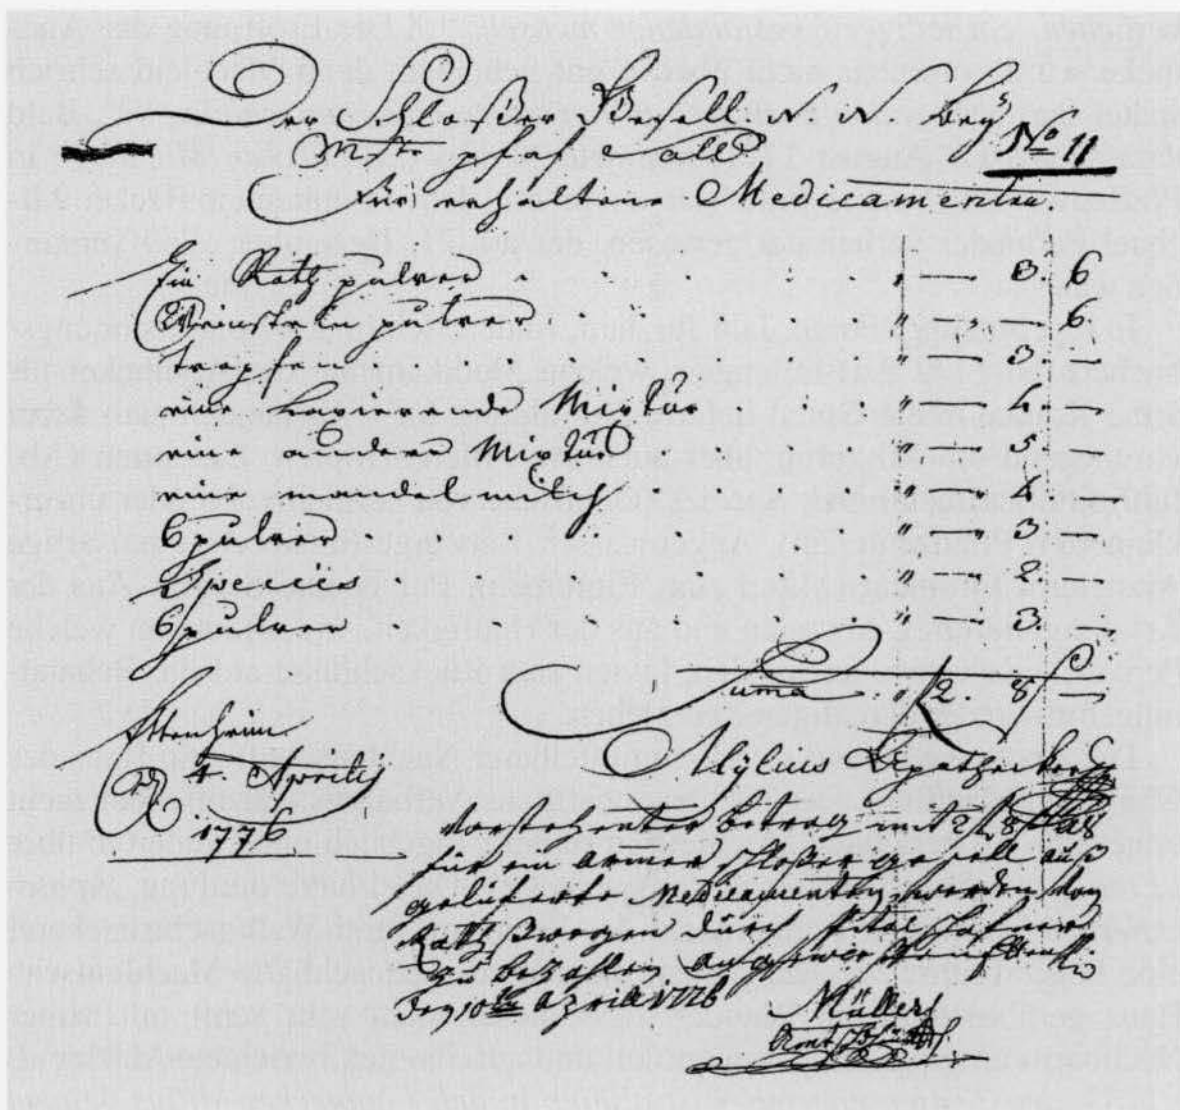 Der Schloßer Gesell N. N. beÿ
Mstr. pfaf solle
No 11
für erhaltene Medicamenten.
Ein Kotz pulver . . . . . . " — 8. 6
Weinstein pulver . . . . . . " — " . 6.
tropfe . . . . . . " — 3. —
eine Laxierende Mixtur . . . . " — 4. —
eine andere Mixtur . . . . " — 5. —
eine mandel milch . . . . " — 4 —
6 pulver . . . . . . " — 3. —
Species . . . . . . " — 2. —
6 pulver . . . . . . " — 3. —
Suma . " 2. 8 —
Ettenheim
d. 4. Aprilis
1776
Mÿlius Apothecker
Vorstehenter Betrag mit 2 8
für ein armer schloßer gesell auß
geliferte Medicamenten werden von
Raths wegen durch spital schafner
zu bezahlen angewiesen Ettenh.
den 10ten Aprill 1776
Müller